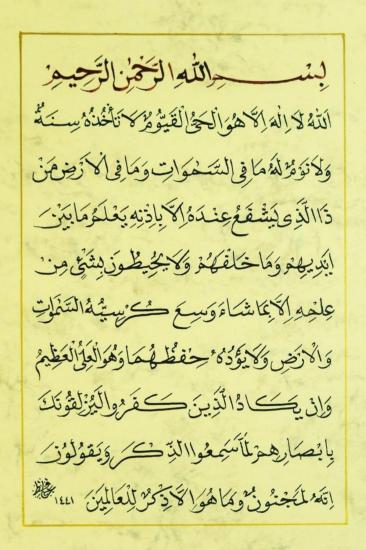 بسم الله الرحمن الرحيم
الله لا اله الا هو الحي القيوم لا تأخذه سنة
ولا نوم له ما في السموات وما في الارض من
ذا الذي يشفع عنده الا باذنه يعلم ما بين
ايديهم وما خلفهم ولا يحيطون بشئ من
علمه الا بما شاء وسع كرسيه السموات
والارض ولا يؤده حفظهما وهو العلي العظيم
وان يكاد الذين كفروا ليزلقونك
بابصارهم لما سمعوا الذكر ويقولون
انه لمجنون وما هو الا ذكر للعالمين
١٤٤١